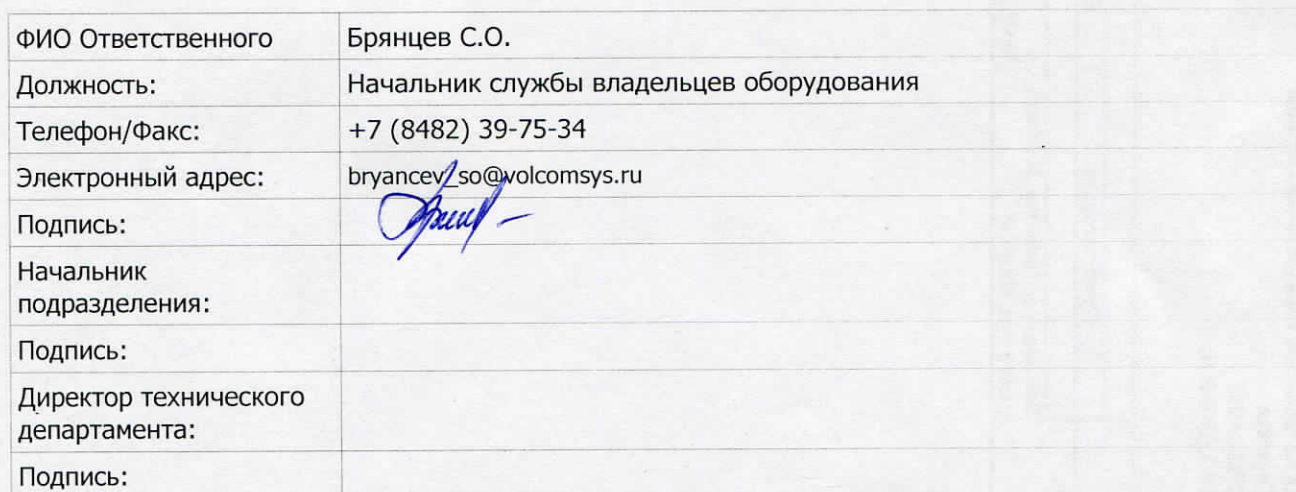 ФИО Ответственного Брянцев С.О.
Должность: Начальник службы владельцев оборудования
Телефон/Факс: +7 (8482) 39-75-34
Электронный адрес: bryancev_so@volcomsys.ru
Подпись:
Начальник
подразделения:
Подпись:
Директор технического
департамента:
Подпись: